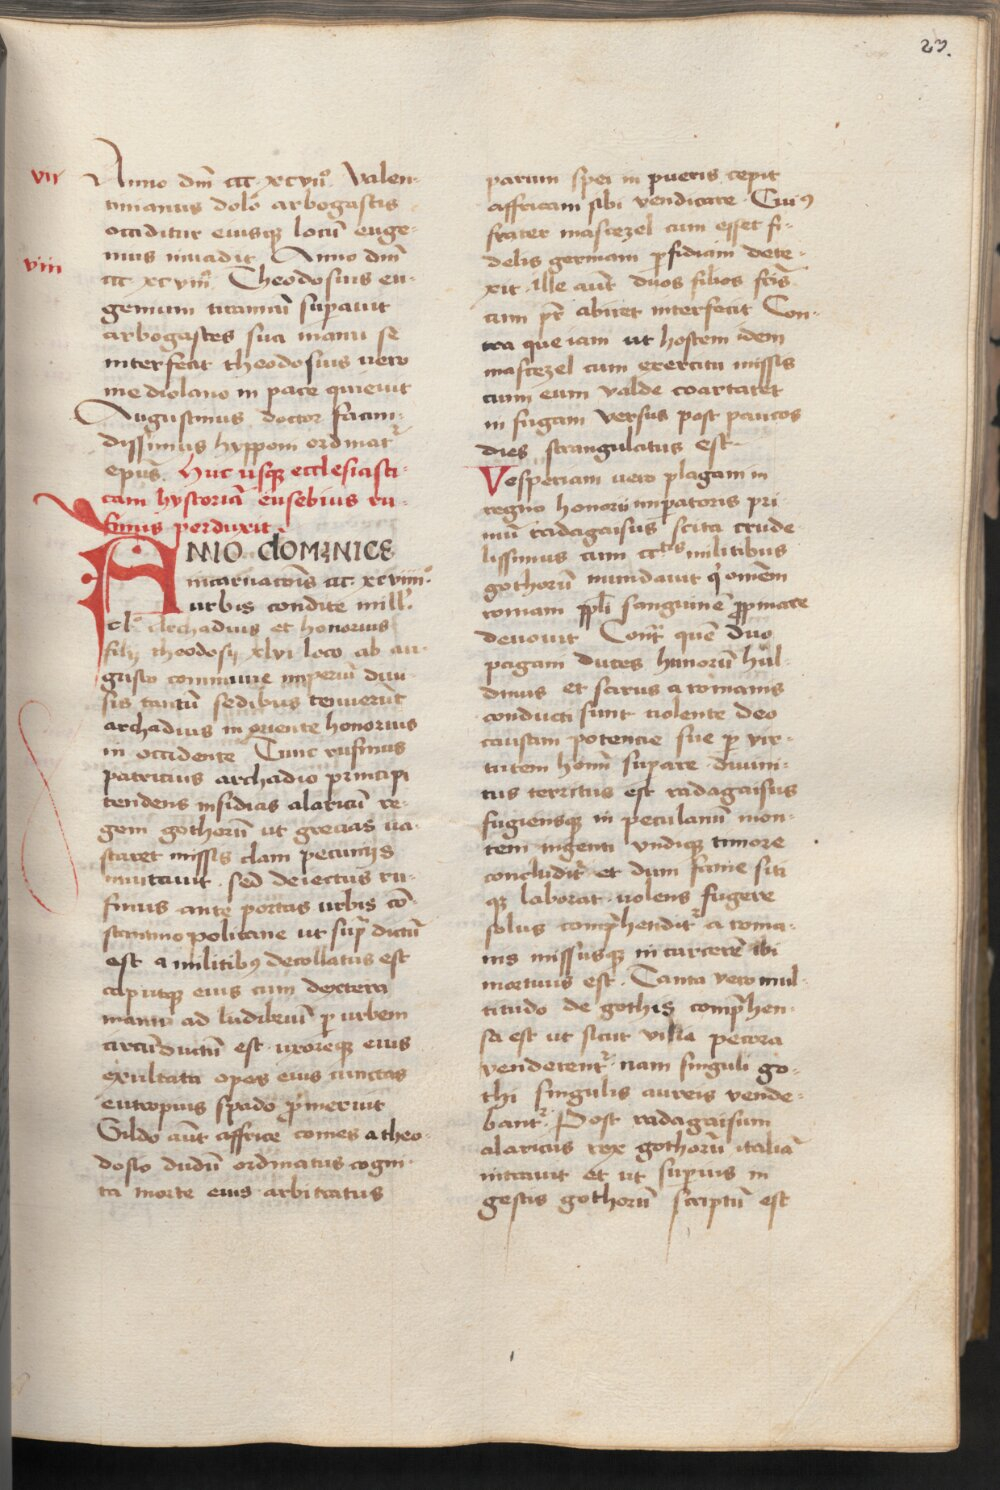 23.
vii
Anno dm̄ ccc xcvii⁰ Valen-
tinianus dolo arbogastis
occiditur eiusqꝫ locū euge-
nius inuadit Anno dm̄
viii
ccc xcviii⁰ Theodosius eu-
genium tirannū suꝑauit
arbogastes sua manu se
interfecit theodosius uero
mediolano in pace quieuit
Augustinus doctor facun-
dissimus hypponi ordinat᷑
ep̄us. Huc usqꝫ ecclesiasti-
cam hystoriā eusebius ru-
finus perduxit
ANNO DOMINICE
incarnacōis ccc xcviiii⁰
urbis condite mill⁰
cl⁰ Archadius et honorius
filij theodosij xlvi loco ab au-
gusto commune imperiū diui-
sis tantū sedibus tenuerūt
archadius in oriente honorius
in occidente Tunc rufinus
patricius archadio principi
tendens insidias alaricū re-
gem gothorū ut grecias ua-
staret missis clam pecunijs
inuitauit. sed deiectus ru-
finus ante portas urbis cō
stantinopolitane ut sup̄ dictū
est a militibꝰ decollatus est
caputqꝫ eius cum dextera
manu ad ludibriū ꝑ urbem
circūductū est. uxoreqꝫ eius
exultata opes eius cunctas
eutropius spado ꝓmeruit
Gildo aūt affrice comes a theo-
dosio dudū ordinatus cogni-
ta morte eius arbitratus
parum spei in pueris cepit
affricam sibi vendicare. Cuiꝰ
frater mascezel cum esset fi-
delis germani ꝑfidiam dete-
xit. ille aūt duos filios fr̄is
cum p̄r abiret interfecit Con-
tra que iam ut hostem idem
mascezel cum exercitu missis
cum eum valde coartaret
in fugam versus post paucos
dies strangulatus est.
Vesperiam uero plagam in
regno honorii impatoris pri
mū radagaisus scita crude
lissimus cum cctis militibus
gothorū inundauit q̄ omēm
romam ppl̄i sanguinē ꝓpinare
deuouit Contr̄ quē duo
pagani duces hunorū hul-
dinus et sarus a romanis
conducti sunt nolente deo
causam potencie sue ꝑ vir-
tutem homī supare. diuini-
tus territus est radagaisus
fugiensqꝫ in peculanū mon-
tem ingenti undiqꝫ timore
concludit᷑ et dum fame siti
qꝫ laborat. uolens fugere
solus comp̄hendit᷑ a roma-
nis missusqꝫ in carcerē ibi
mortuus est. Tanta vero mul-
titudo de gothis comp̄hen-
sa est ut sicut vilia pecora
venderent᷑. nam singuli go-
thi singulis aureis vende-
bant᷑. Post radagaisum
alaricus rex gothorū italiā
intrauit et ut supius in
gestis gothorū scriptū est